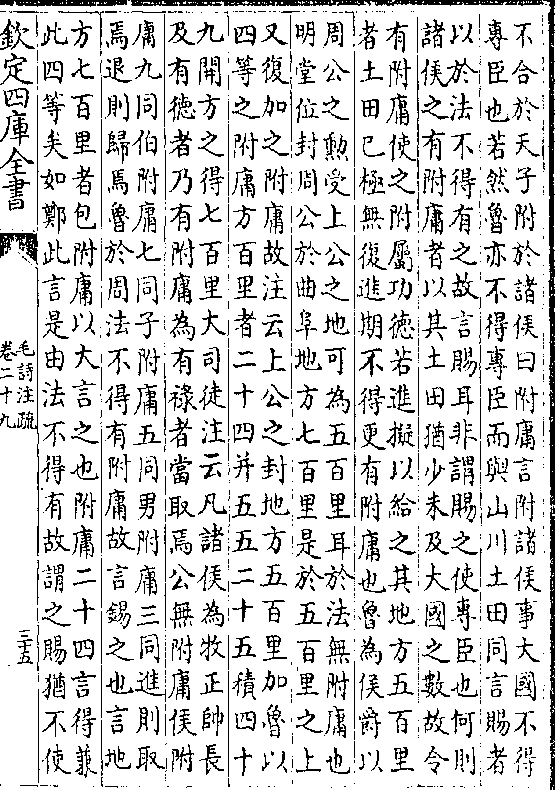 不合於天子附於諸侯曰附庸言附諸侯事大國不得
專臣也若然魯亦不得專臣而與山川土田同言賜者
以於法不得有之故言賜耳非謂賜之使專臣也何則
諸侯之有附庸者以其土田猶少未及大國之數故令
有附庸使之附屬功德若進擬以給之其地方五百里
者土田已極無復進期不得更有附庸也魯為侯爵以
周公之勳受上公之地可為五百里耳於法無附庸也
明堂位封周公於曲阜地方七百里是於五百里之上
又復加之附庸故注云上公之封地方五百里加魯以
四等之附庸方百里者二十四并五五二十五積四十
九開方之得七百里大司徒注云凡諸侯為牧正帥長
及有德者乃有附庸為有祿者當取焉公無附庸侯附
庸九同伯附庸七同子附庸五同男附庸三同進則取
焉退則歸焉魯於周法不得有附庸故言錫之也言地
方七百里者包附庸以大言之也附庸二十四言得兼
此四等矣如鄭此言是由法不得有故謂之賜猶不使
欽定四庫全書
毛詩注疏
卷二十九
三十五